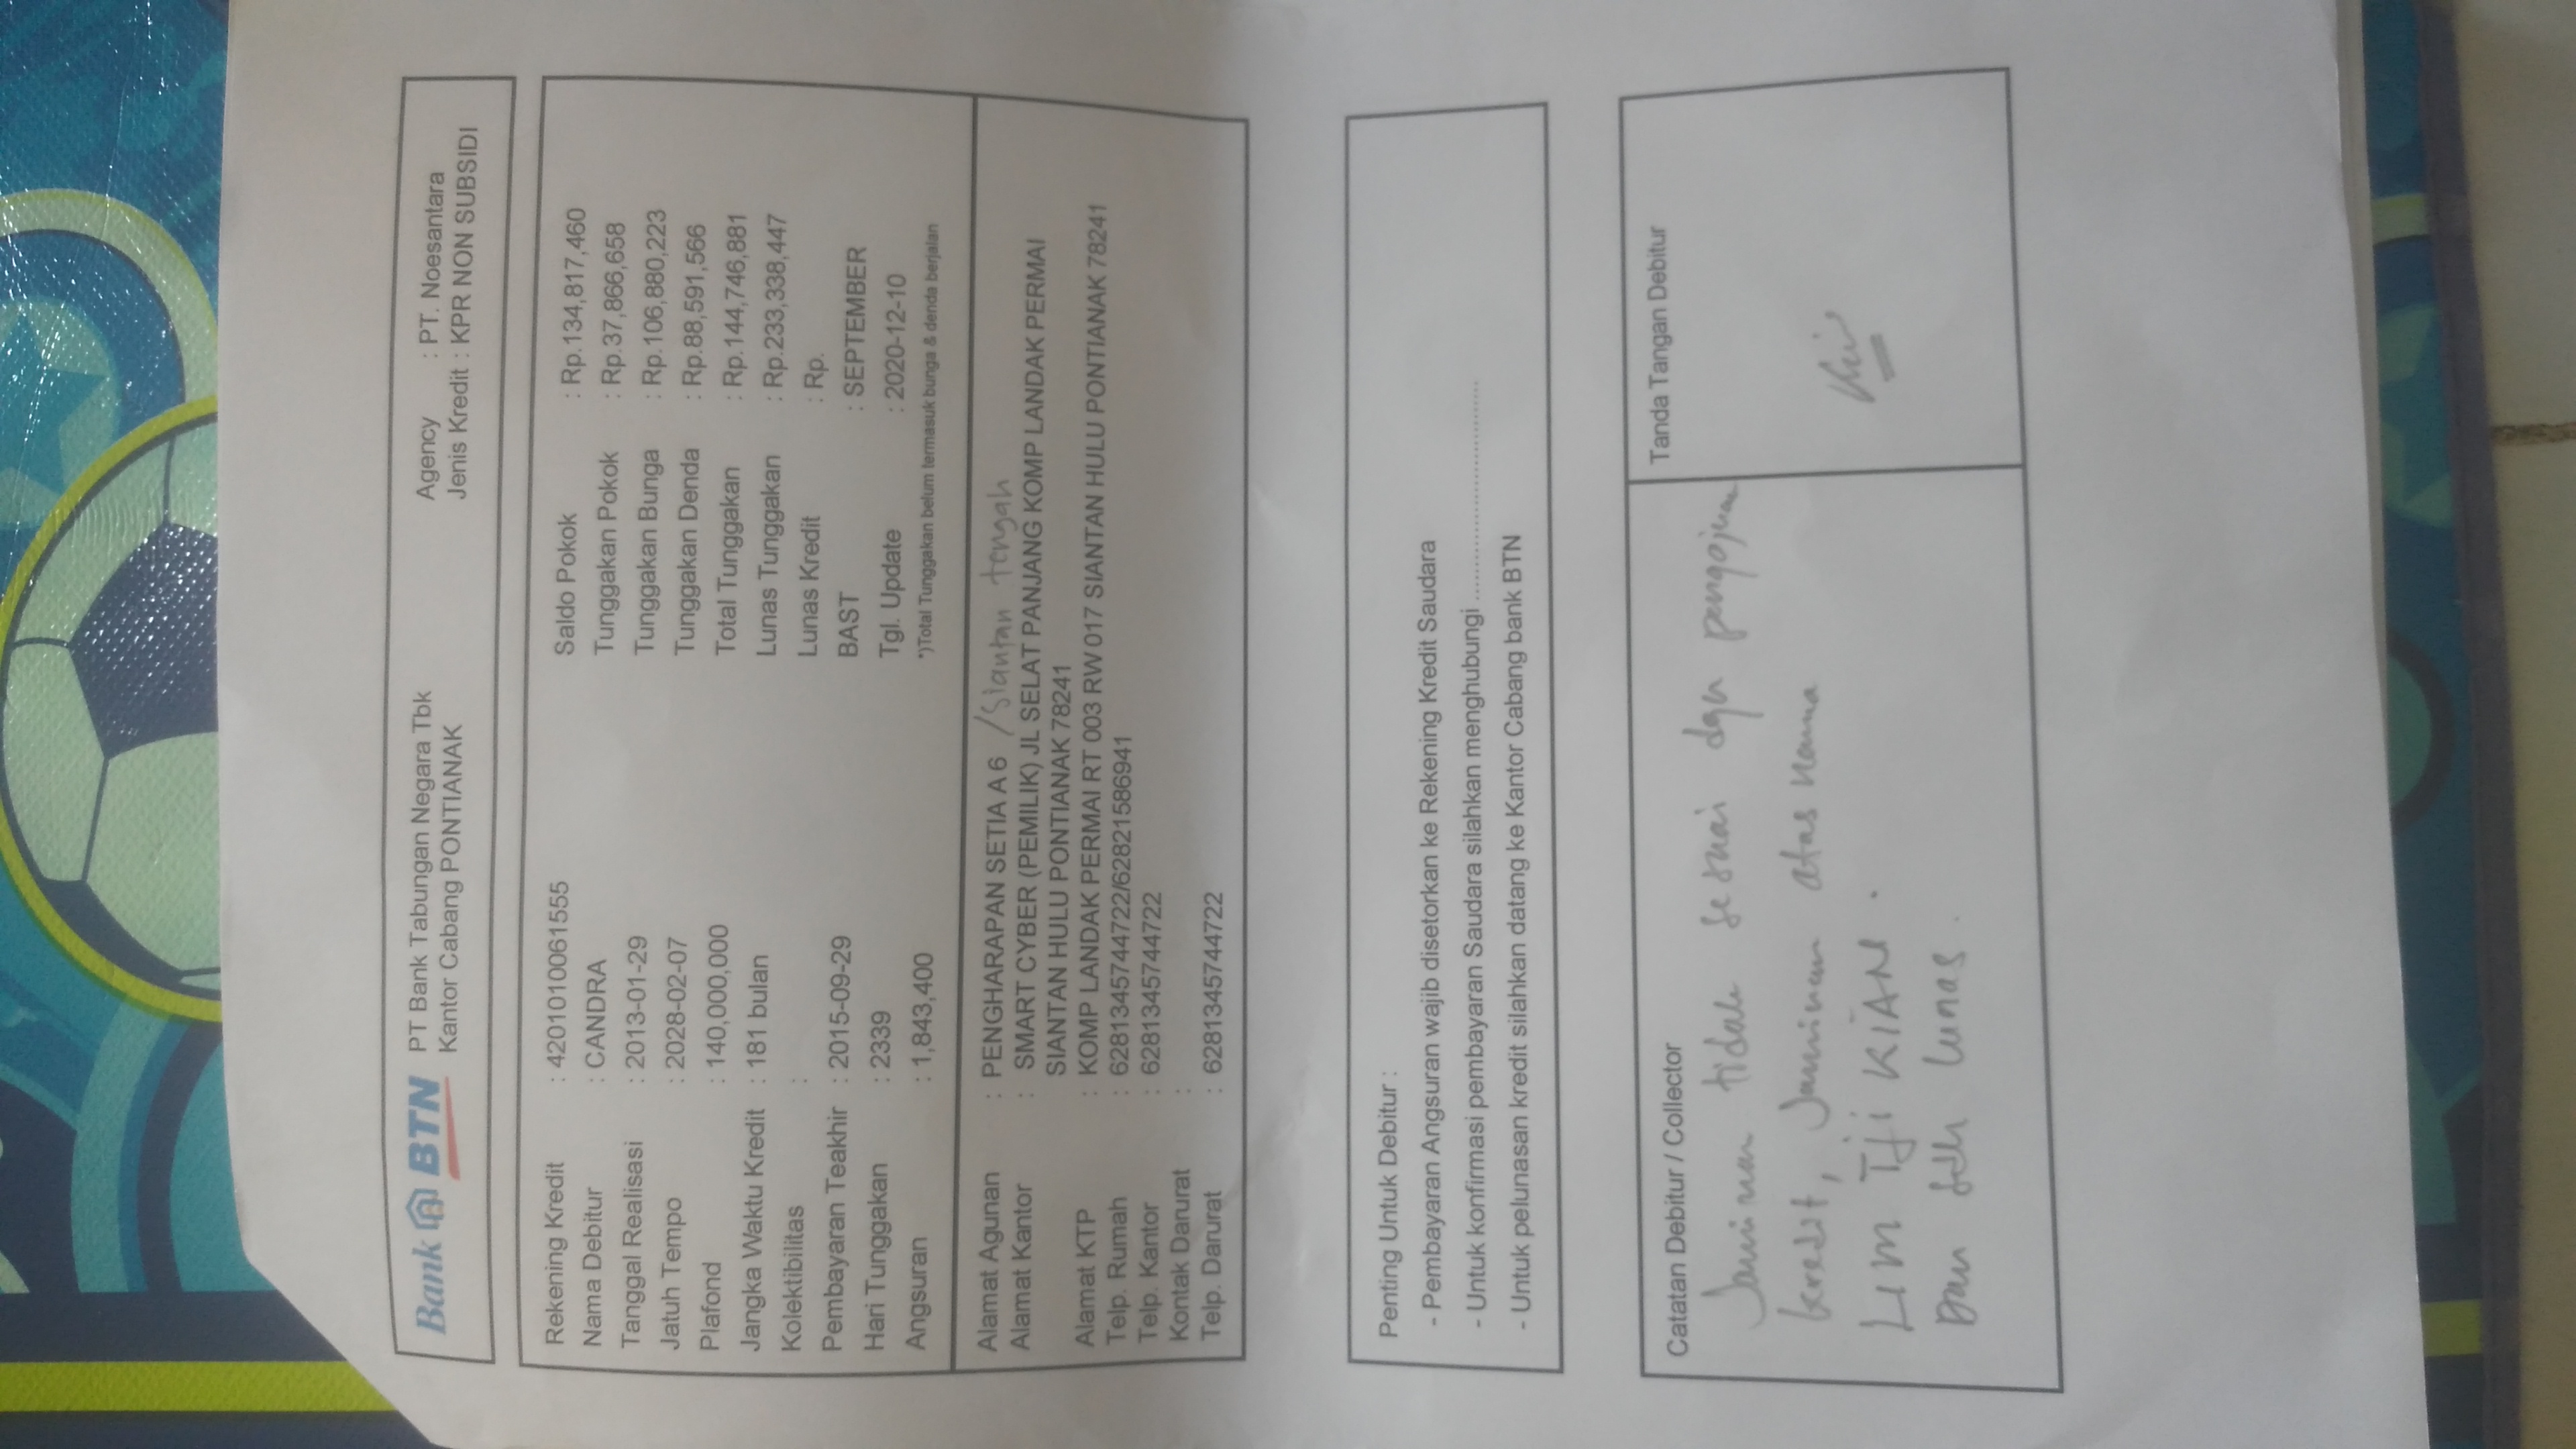 Bank BTN PT Bank Tabungan Negara Tbk Agency : PT. Noesantara
Kantor Cabang PONTIANAK Jenis Kredit : KPR NON SUBSIDI
Rekening Kredit : 4201010061555 Saldo Pokok : Rp.134,817,460
Nama Debitur : CANDRA Tunggakan Pokok : Rp.37,866,658
Tanggal Realisasi : 2013-01-29 Tunggakan Bunga : Rp.106,880,223
Jatuh Tempo : 2028-02-07 Tunggakan Denda : Rp.88,591,566
Plafond : 140,000,000 Total Tunggakan : Rp.144,746,881
Jangka Waktu Kredit : 181 bulan Lunas Tunggakan : Rp.233,338,447
Kolektibilitas : Lunas Kredit : Rp.
Pembayaran Teakhir : 2015-09-29 BAST : SEPTEMBER
Hari Tunggakan : 2339 Tgl. Update : 2020-12-10
Angsuran : 1,843,400 *)Total Tunggakan belum termasuk bunga & denda berjalan
Alamat Agunan : PENGHARAPAN SETIA A 6 / Siantan tengah
Alamat Kantor : SMART CYBER (PEMILIK) JL SELAT PANJANG KOMP LANDAK PERMAI
SIANTAN HULU PONTIANAK 78241
Alamat KTP : KOMP LANDAK PERMAI RT 003 RW 017 SIANTAN HULU PONTIANAK 78241
Telp. Rumah : 6281345744722/6282121586941
Telp. Kantor : 6281345744722
Kontak Darurat :
Telp. Darurat : 6281345744722
Penting Untuk Debitur :
- Pembayaran Angsuran wajib disetorkan ke Rekening Kredit Saudara
- Untuk konfirmasi pembayaran Saudara silahkan menghubungi ..............................
- Untuk pelunasan kredit silahkan datang ke Kantor Cabang bank BTN
Catatan Debitur / Collector Tanda Tangan Debitur
Jaminan tidak sesuai dgn
kredit, Jaminan atas nama
LIM TJI KIAN.
Dan sdh lunas.